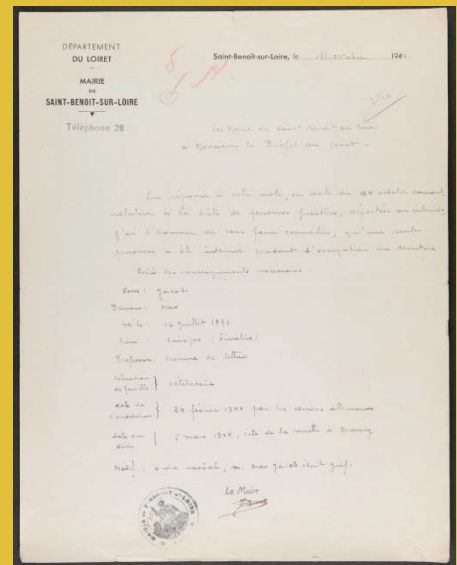 DÉPARTEMENT
DU LOIRET
MAIRIE
DE
SAINT-BENOIT-SUR-LOIRE
Téléphone 28
Saint-Benoît-sur-Loire, le octobre 194
Vu
Le Maire de Saint Benoit sur Loire
à Monsieur le Préfet du Loiret
En réponse à votre note, en date du octobre courant,
relative à la liste de personnes fusillées, déportées ou internées,
j'ai l'honneur de vous faire connaître, qu'une seule
personne a été internée pendant l'occupation du territoire.
Voici les renseignements nécessaires
Nom : Jacob
Prénoms : Max
né le : 12 juillet 1876
Lieu : Quimper (Finistère)
Profession : homme de lettres
situation de famille } célibataire
date de l'arrestation } 24 février 1944 par les services allemands
date du décès } 5 mars 1944, cité de la muette à Drancy
Motif : ordre racial, M. Max Jacob était juif.
Le Maire